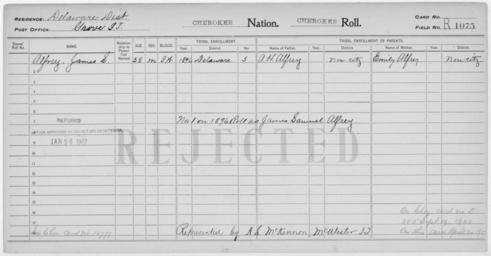 RESIDENCE: Delaware Dist.
POST OFFICE: Grove I.T.
CHEROKEE Nation. CHEROKEE Roll.
CARD NO.
FIELD NO. R 1075
Dawes' Roll No. NAME Relationship to Person First Named AGE SEX BLOOD TRIBAL ENROLLMENT TRIBAL ENROLLMENT OF PARENTS
Year District No. Name of Father Year District Name of Mother Year District
Alfrey, James S. 38 M I.W. 1896 Delaware 3 A.H. Alfrey Non city Emily Alfrey Non city
No 1 on 1896 Roll as James Samuel Alfrey
REFUSED
JAN 26 1907
REJECTED
Represented by A.S. McKennon, McAlester I.T.